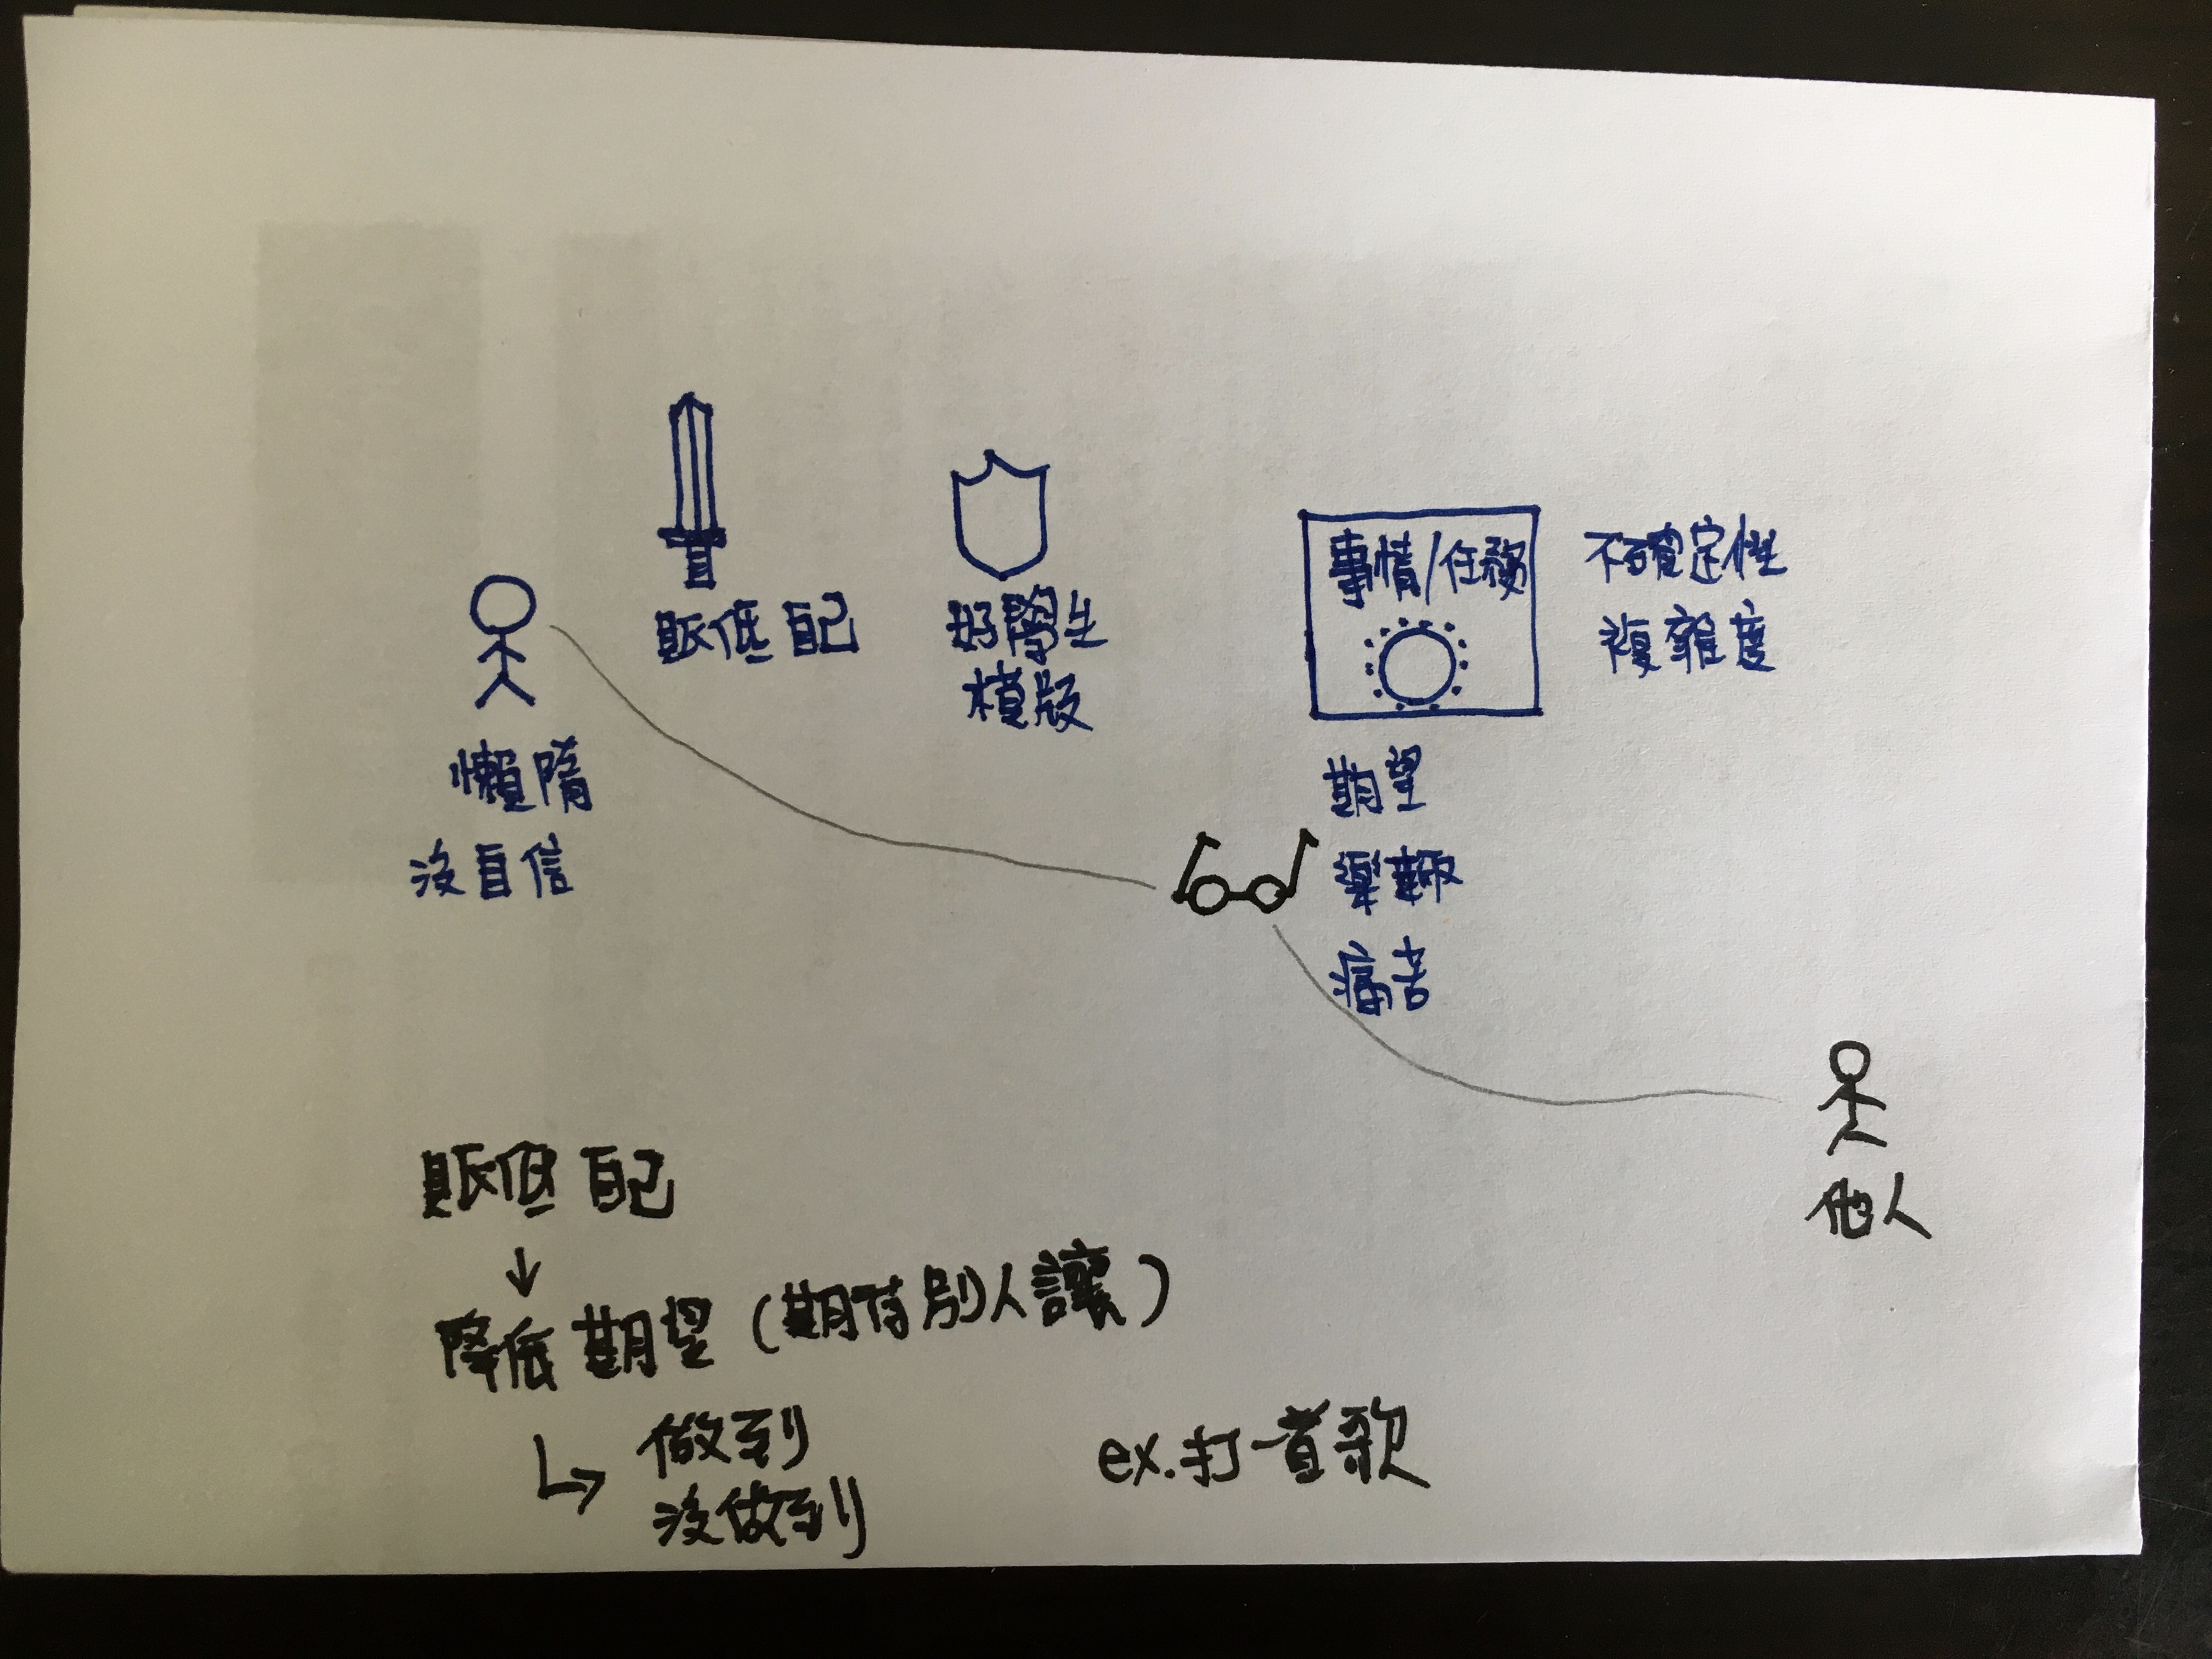 貶低自己
好學生
模版
事情/任務
不確定性
複雜度
懶隋
沒自信
期望
樂趣
痛苦
他人
貶低自己
↓
降低期望(期待別人讓)
↳ 做到
沒做到
ex.打一首歌